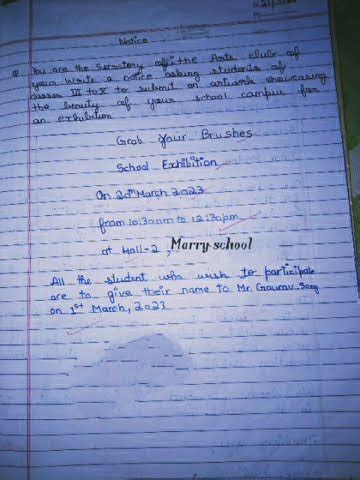 Notice
Q You are the Secretary of the Arts club of
your Write a notice asking students of
classes VI to X to submit an artwork showcasing
the beauty of your school campus for
an exhibition
Grab Your Brushes
School Exhibition
On 20th March 2023
from 10:30am to 12:30pm
at Hall-2, Marry school
All the student who wish to participate
are to give their name to Mr. Gaurav
on 1st March, 2023